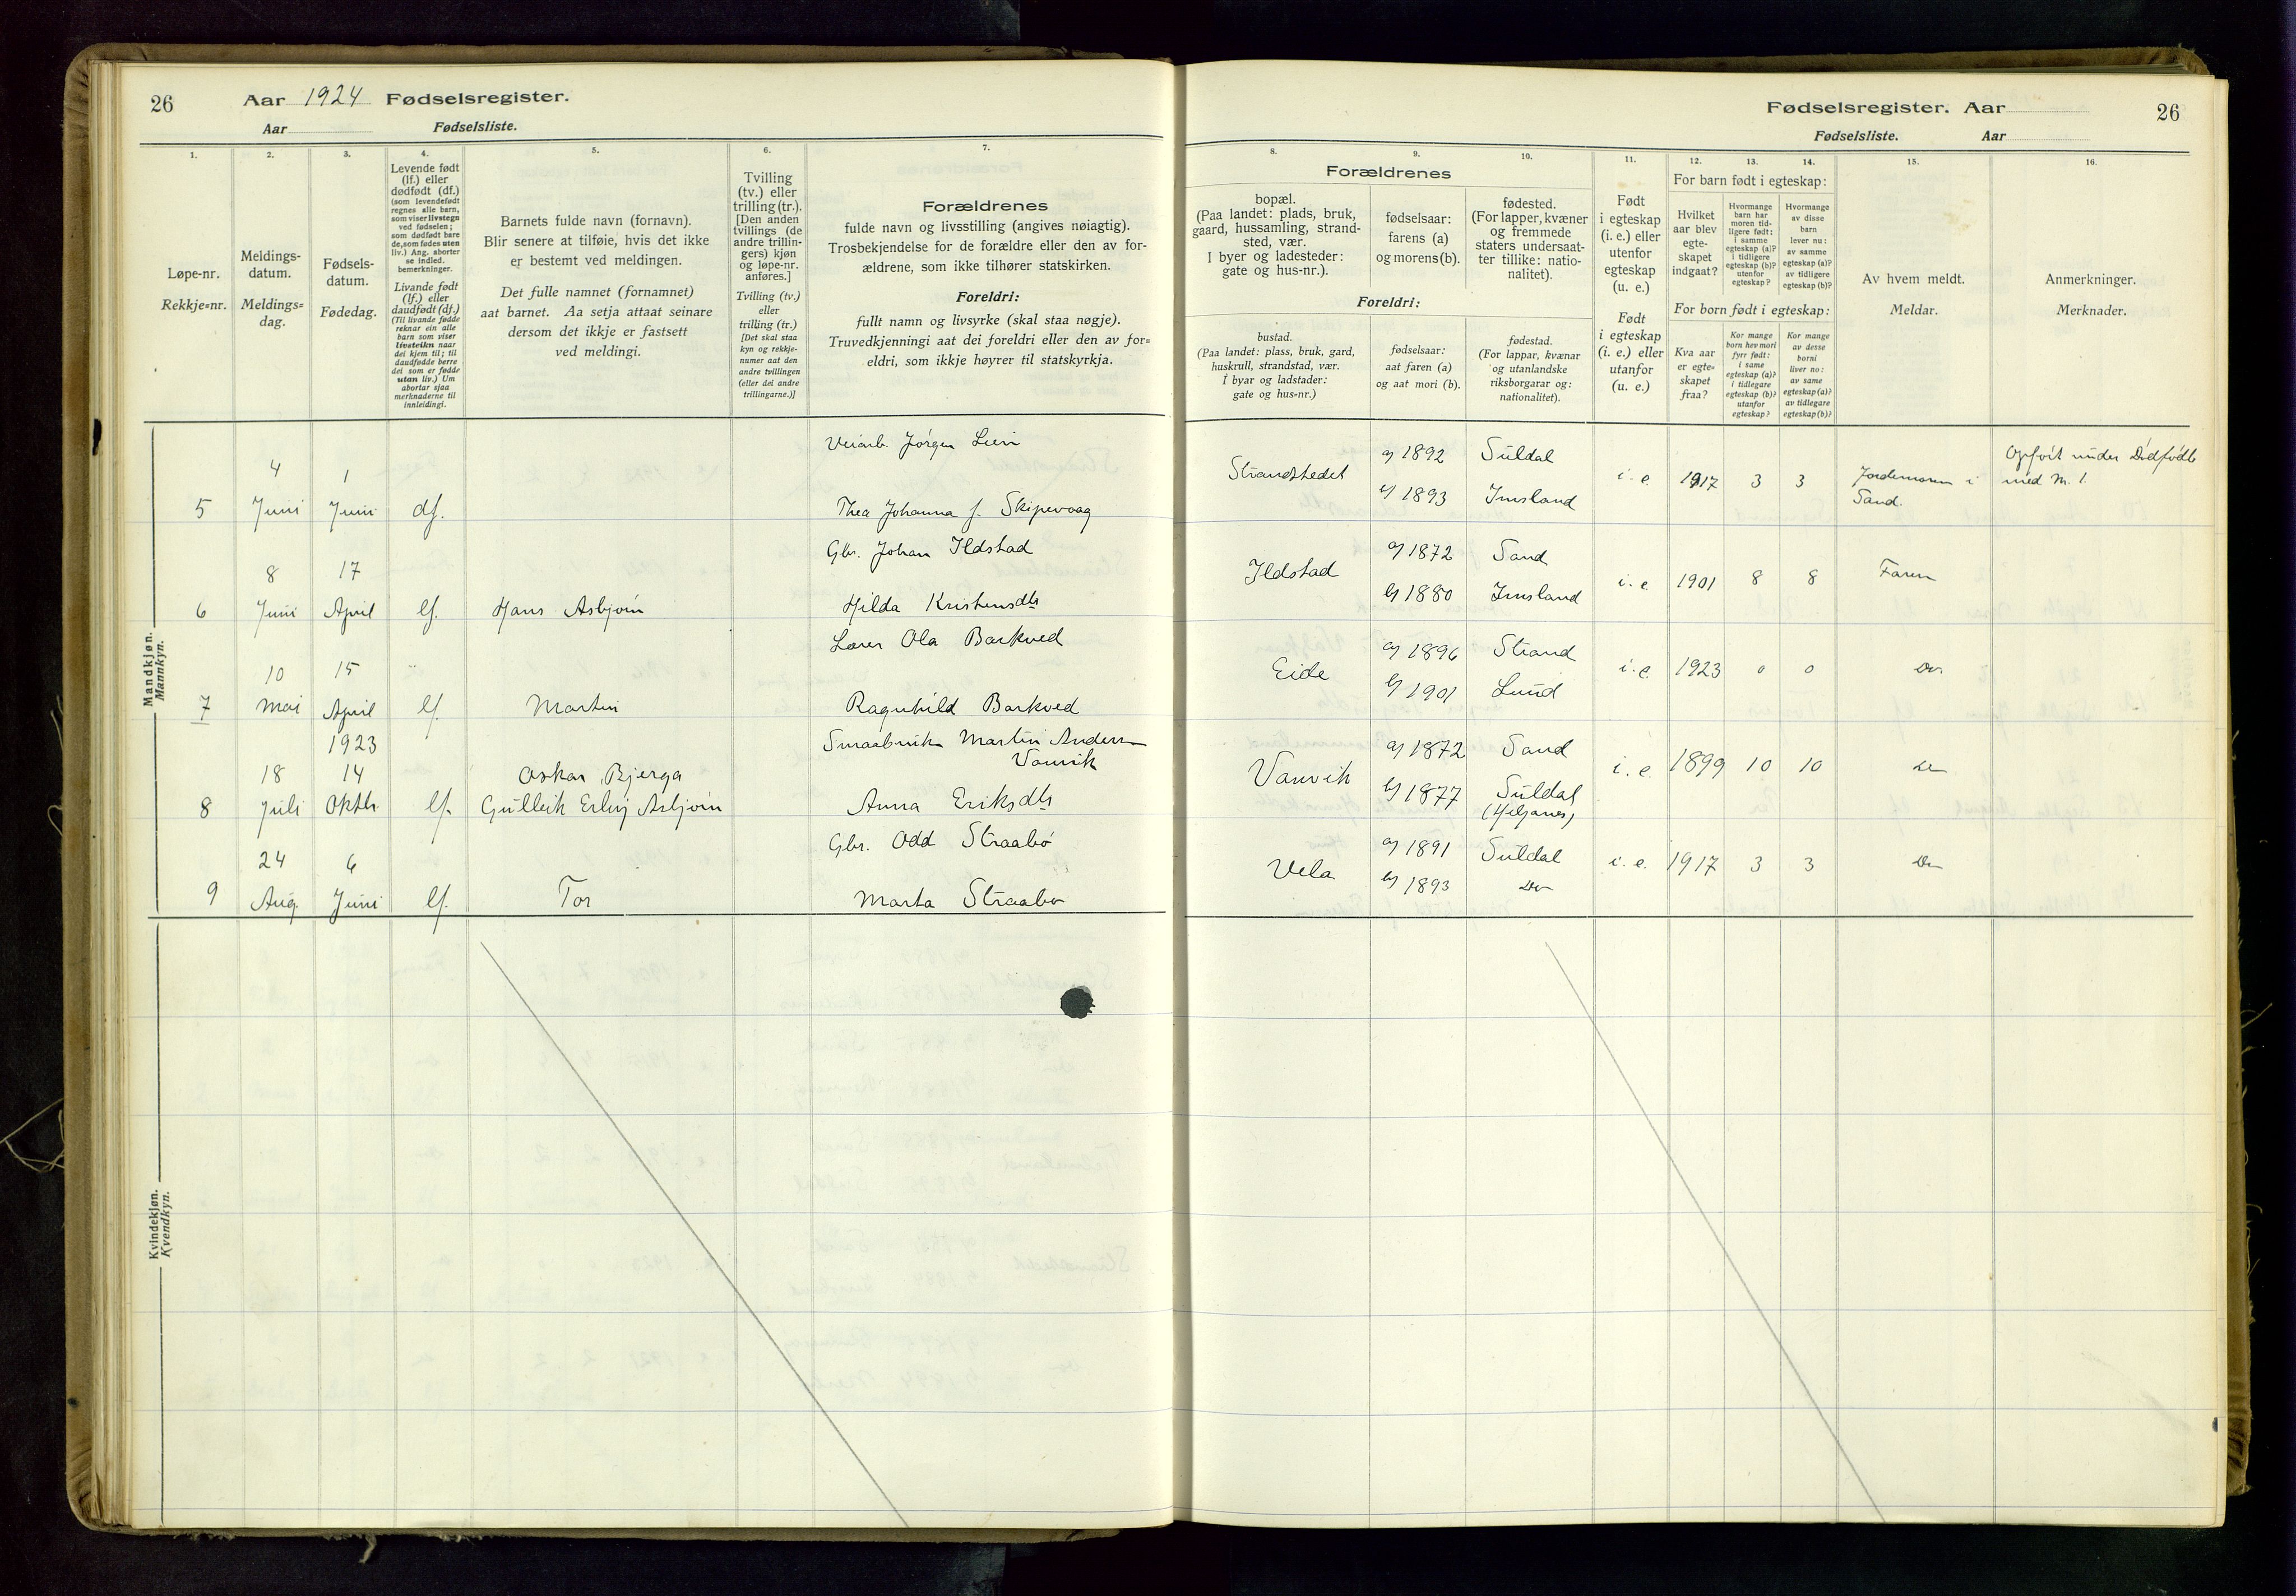 26 Aar 1924 Fødselsregister.
Aar Fødselsliste.
Fødselsregister. Aar 26
Fødselsliste. Aar
1.
Løpe-nr.
Rekkje=nr.
2.
Meldings-
datum.
Meldings=
dag.
3.
Fødsels-
datum.
Fødedag.
4.
Levende født
(lf.) eller
dødfødt (df.)
(som levendefødt
regnes alle barn,
som viser livstegn
ved fødselen;
som dødfødt bare
de, som fødes uten
liv.) Ang. aborter
se indled.
bemerkninger.
Livande født
(lf.) eller
daudfødt (df.)
(Til livande fødde
reknar ein alle
barn som viser
livsteikn naar
dei kjem til; til
daudfødde berre
dei som er fødde
utan liv.) Um
abortar sjaa
merknaderne til
innleidingi.
5.
Barnets fulde navn (fornavn).
Blir senere at tilføie, hvis det ikke
er bestemt ved meldingen.
Det fulle namnet (fornamnet)
aat barnet. Aa setja attaat seinare
dersom det ikkje er fastsett
ved meldingi.
6.
Tvilling
(tv.) eller
trilling (tr.).
[Den anden
tvillings (de
andre trillin-
gers) kjøn
og løpe-nr.
anføres.]
Tvilling (tv.)
eller
trilling (tr.)
[Det skal staa
kyn og rekkje-
numer aat den
andre tvillingen
(eller dei andre
trillingarne.)]
7.
Forældrenes
fulde navn og livsstilling (angives nøiagtig).
Trosbekjendelse for de forældre eller den av for-
ældrene, som ikke tilhører statskirken.
Foreldri:
fullt namn og livsyrke (skal staa nøgje).
Truvedkjenningi aat dei foreldri eller den av for=
eldri, som ikkje høyrer til statskyrkja.
Forældrenes
8.
bopæl.
(Paa landet: plads, bruk,
gaard, hussamling, strand-
sted, vær.
I byer og ladesteder:
gate og hus-nr.).
9.
fødselsaar:
farens (a)
og morens (b).
10.
fødested.
(For lapper, kvæner
og fremmede
staters undersaat-
ter tillike: natio-
nalitet).
Foreldri:
bustad.
(Paa landet: plass, bruk, gard,
huskrull, strandstad, vær.
I byar og ladstader:
gate og hus=nr.)
fødselsaar:
aat faren (a)
og aat mori (b).
fødestad.
(For lappar, kvænar
og utanlandske
riksborgarar og:
nationalitet).
11.
Født
i egteskap
(i. e.) eller
utenfor
egteskap
(u. e.)
Født
i egteskap
(i. e.) eller
utanfor
(u. e.)
12. 13. 14.
For barn født i egteskap:
Hvilket
aar blev
egte-
skapet
indgaat?
Hvormange
barn har
moren tid-
ligere født:
i samme
egteskap (a)?
i tidligere
egteskap (b)?
utenfor
egteskap?
Hvormange
av disse
barn
lever nu:
av samme
egteskap (a)?
av tidligere
egteskap (b)?
For born født i egteskap:
Kva aar
er egte=
skapet
fraa?
Kor mange
born hev mori
fyrr født:
i same
egteskap (a)?
i tidlegare
egteskap (b)?
utanfor
egteskap?
Kor mange
av desse
borni
liver no:
av same
egteskap (a)?
av tidlegare
egteskap (b)?
15.
Av hvem meldt.
Meldar.
16.
Anmerkninger.
Merknader.
Mandkjøn.
Mannkyn.
Veiarb. Jørgen Lien
4 1
5 Juni Juni df. Thea Johanna f. Skipevaag
Strandstedet a) 1892 Suldal i. e. 1917 3 3 Jordemoren i Opført under Dødfødte
b) 1893 Imsland Sand. med M. 1.
Gbr. Johan Ildstad
8 17
6 Juni April lf. Hans Asbjørn Hilda Kristensdtr
Ildstad a) 1872 Sand i. e. 1901 8 8 Faren
b) 1880 Imsland
Lærer Ola Barkved
10 15
7 Mai April lf. Martin Ragnhild Barkved
Eide a) 1896 Strand i. e. 1923 0 0 Do
b) 1901 Lund
1923 Smaabruk. Martin Andersen
Vanvik
18 14 Oskar Bjerga
8 Juli Oktbr. lf. Gulleik Erling Asbjørn Anna Eriksdtr
Vanvik a) 1872 Sand i. e. 1899 10 10 Do
b) 1877 Suldal
Gbr. Odd Straabø
24 6
9 Aug. Juni lf. Tor Marta Straabø
Vela a) 1891 Suldal i. e. 1917 3 3 Do
b) 1893 Do
Kvindekjøn.
Kvendkyn.